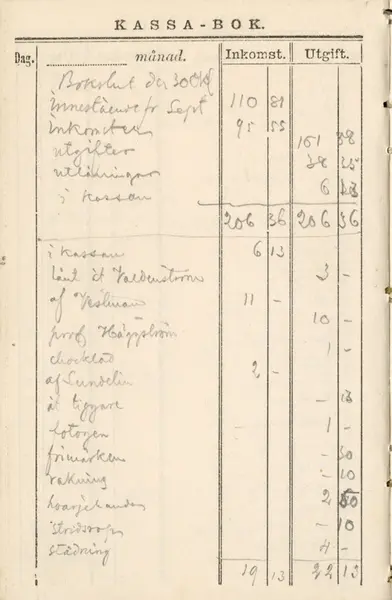 KASSA-BOK.
Dag. månad. Inkomst. Utgift.
Bokslut den 30 Okt
innestående fr Sept 110 81
inkomster 95 55
utgifter 161 38
utlåningar 38 25
i kassan 6
206 36 206 36
i kassan 6 13
lånt åt Valdenström 3 -
af Westman 11 -
prof Häggström 10 -
choklad 1 -
af Lundelin 2 -
åt tiggare - 13
fotogen 1 -
frimärken - 30
rakning - 10
hvarjehanda 2
- 10
städning 4 -
19 13 22 13